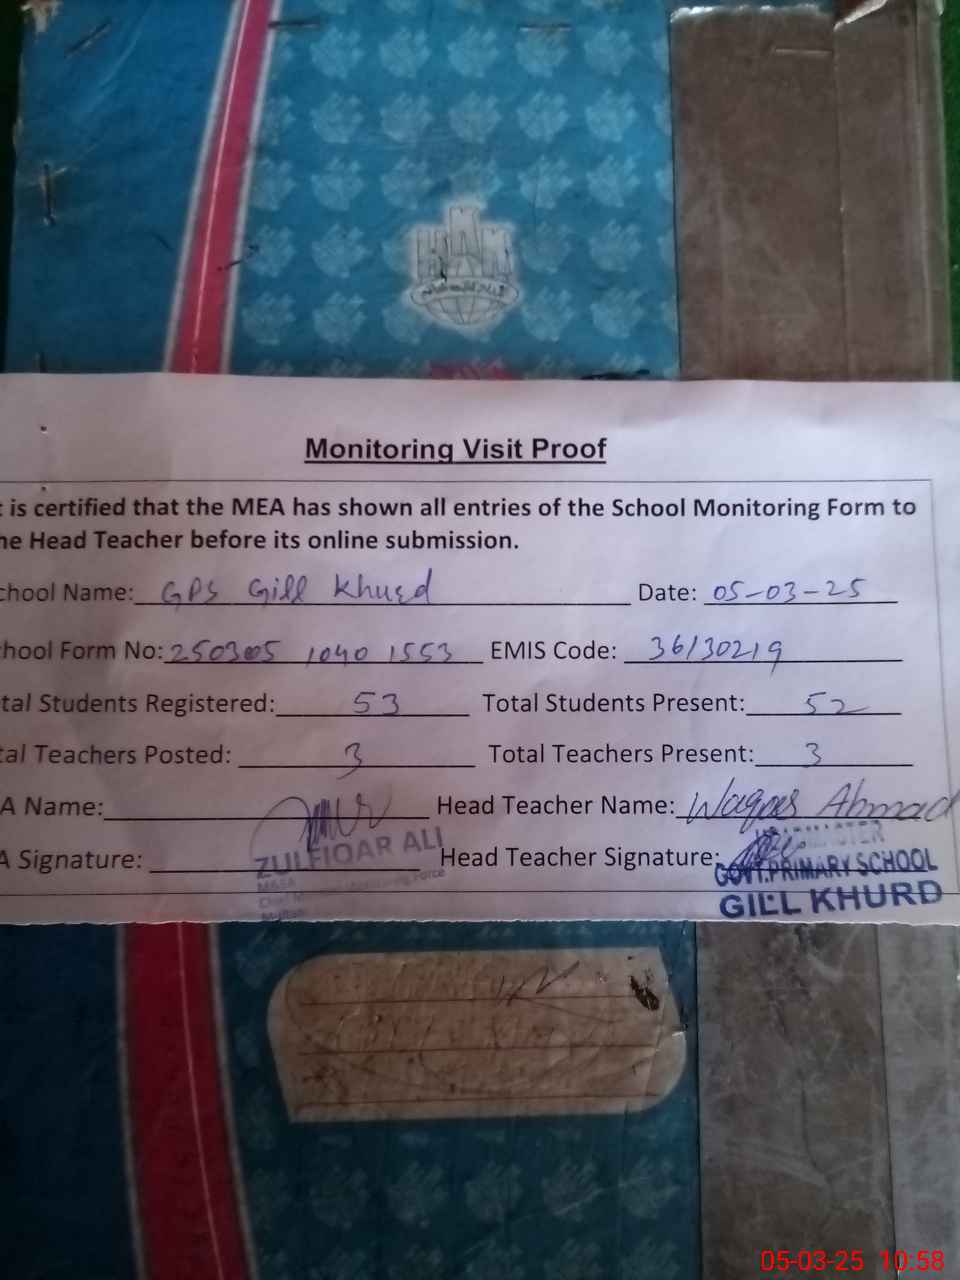 KAM
Monitoring Visit Proof
t is certified that the MEA has shown all entries of the School Monitoring Form to
he Head Teacher before its online submission.
chool Name: GPS Gill Khurd Date: 05-03-25
hool Form No: 250305 1040 1553 EMIS Code: 36130219
tal Students Registered: 53 Total Students Present: 52
tal Teachers Posted: 3 Total Teachers Present: 3
A Name: Head Teacher Name: Waqas Ahmad
A Signature: Head Teacher Signature:
ZULFIQAR ALI
Monitoring Force
HEADMASTER
GOVT.PRIMARY SCHOOL
GILL KHURD
05-03-25 10:58